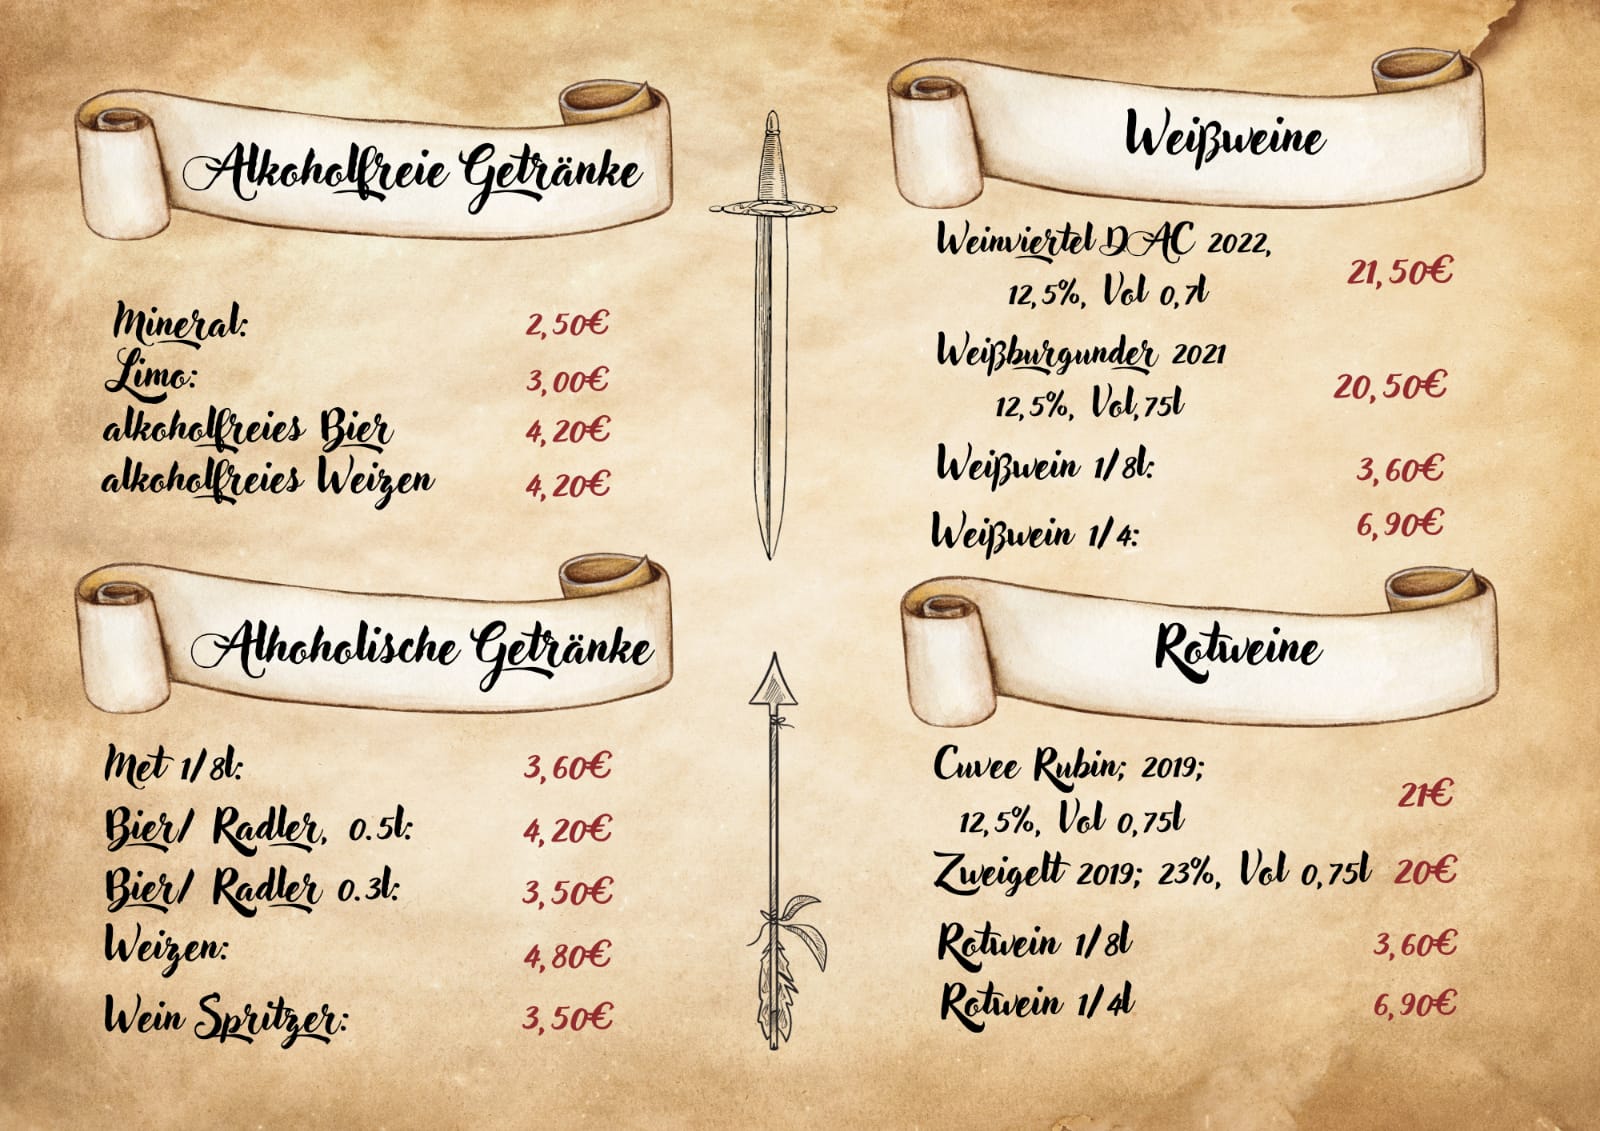 Alkoholfreie Getränke
Mineral: 2,50€
Limo: 3,00€
alkoholfreies Bier 4,20€
alkoholfreies Weizen 4,20€
Alhoholische Getränke
Met 1/8l: 3,60€
Bier/ Radler, 0.5l: 4,20€
Bier/ Radler 0.3l: 3,50€
Weizen: 4,80€
Wein Spritzer: 3,50€
Weißweine
Weinviertel DAC 2022,
12,5%, Vol 0,7l
21,50€
Weißburgunder 2021
12,5%, Vol,75l
20,50€
Weißwein 1/8l: 3,60€
Weißwein 1/4: 6,90€
Rotweine
Cuvee Rubin; 2019;
12,5%, Vol 0,75l
21€
Zweigelt 2019; 23%, Vol 0,75l 20€
Rotwein 1/8l 3,60€
Rotwein 1/4l 6,90€